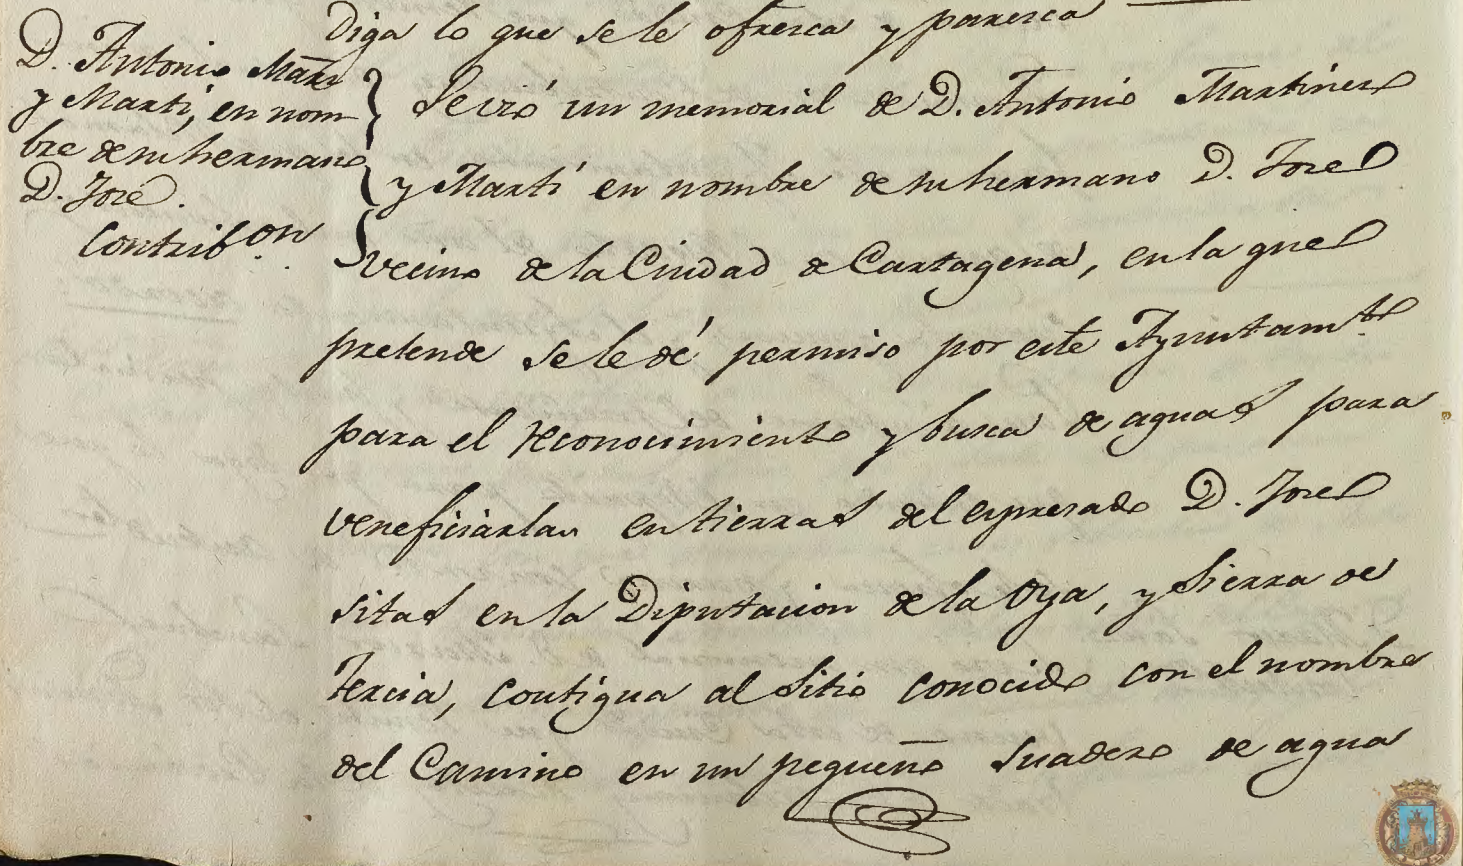 Diga lo que se le ofresca y paresca
D. Antonio Marz.
y Marti, en nom-
bre de su hermano
D. José.
Contribon.
Se vió un memorial de D. Antonio Martines
y Martí en nombre de su hermano D. José
vecino de la Ciudad de Cartagena, en la que
pretende se le dé permiso por este Ayuntamto.
para el reconocimiento y busca de aguas para
veneficiarlas en tierras del expresado D. José
sitas en la Diputacion de la Oya, y Sierra de
tercia, contigua al Sitio conocido con el nombre
del Camino en un pequeño Suadero de agua